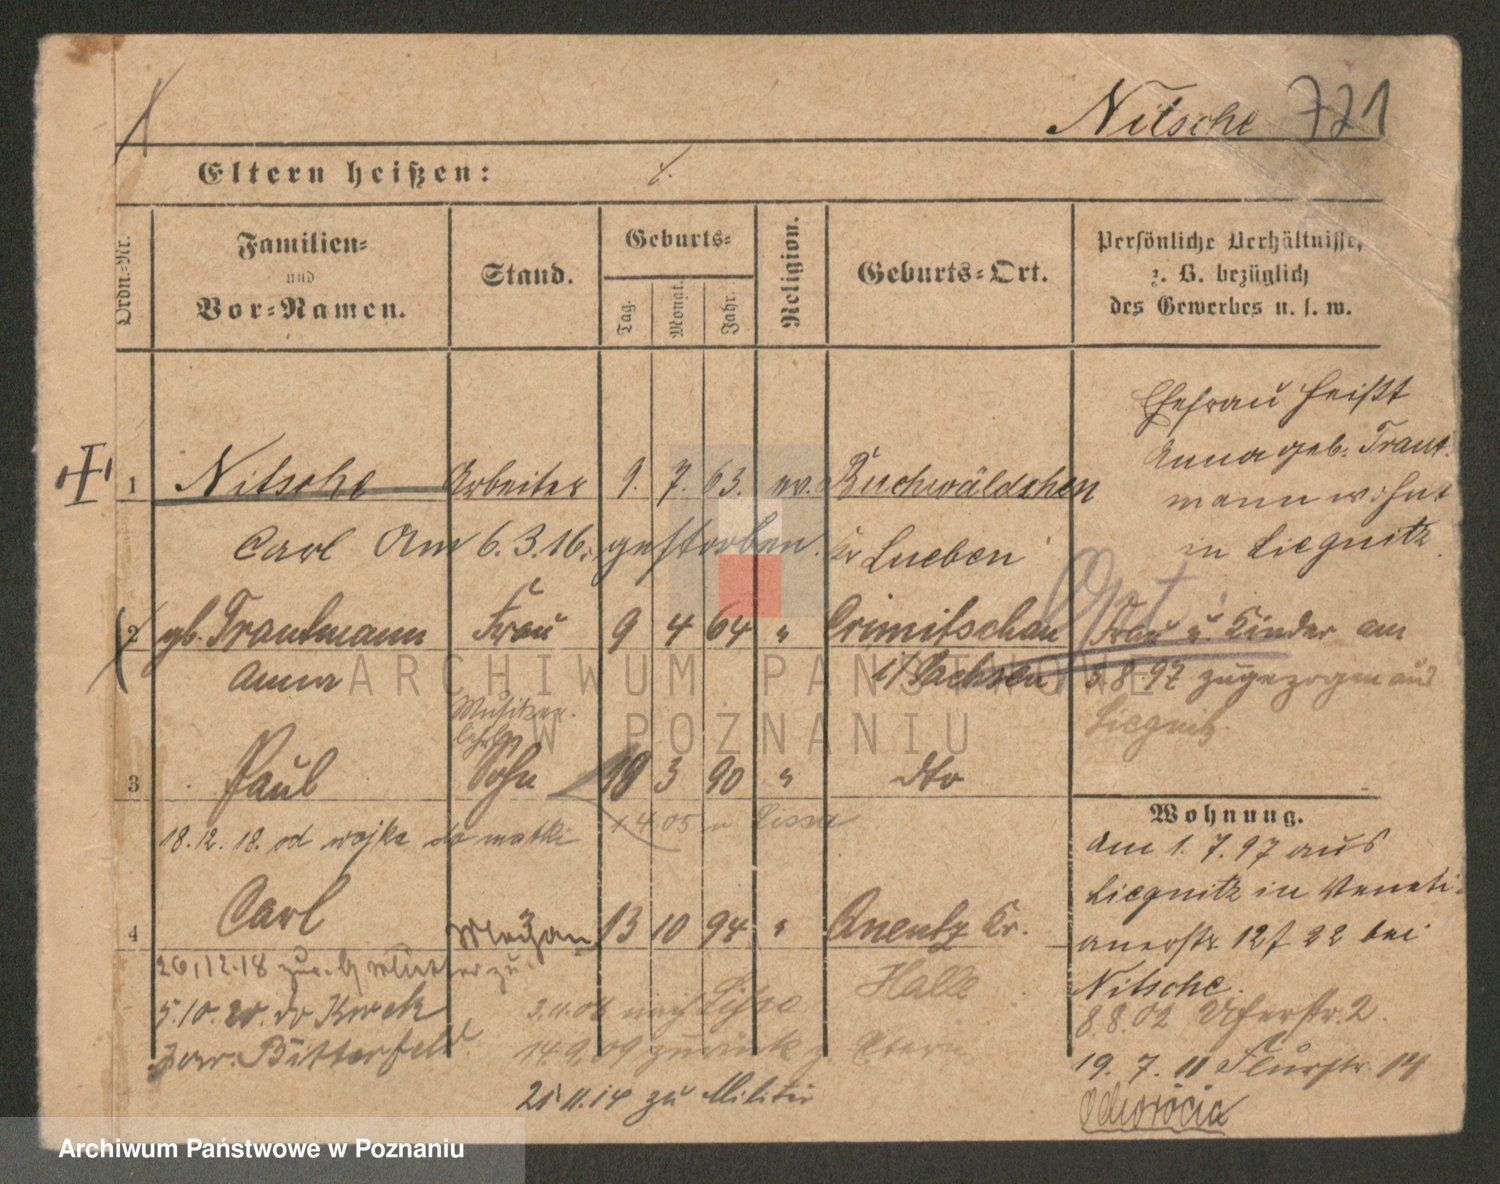 Nitsche 721
Eltern heißen:
Ordn.-Nr.
Familien-
und
Vor-Namen.
Stand.
Geburts-
Tag.
Monat.
Jahr.
Religion.
Geburts-Ort.
Persönliche Verhältnisse,
z. B. bezüglich
des Gewerbes u. s. w.
Ehefrau heißt
Anna geb. Traut-
mann wohnt
in Liegnitz.
1 Nitsche Arbeiter 9. 7. 63. ev. Buchwäldchen
Carl Am 6.3.16. gestorben. Kr Lueben
2 gb. Trautmann Frau 9 4 64 " Crimitschau
Anna i/Sachsen
Frau u Kinder am
3.8.97 zugezogen aus
Liegnitz
3 Paul Sohn 18 3 90 " dto
1.4.05 n Lissa
18.12.18. od wojka do matki
4 Carl 13 10 94 " Kr.
Halle
26.12.18 zur. Mutter zu
5.10. 20.
Bitterfeld
3.11.06 nach Lissa
14.9.09 zurück
21.11.14 zu Militär
Wohnung.
Am 1.7.97 aus
Liegnitz in Veneti-
anerstr. 12 f 22 bei
Nitsche.
8.8.02 Uferstr. 2.
19. 7. 11 Flurstr. 14
ARCHIWUM PAŃSTWOWE
W POZNANIU
Archiwum Państwowe w Poznaniu